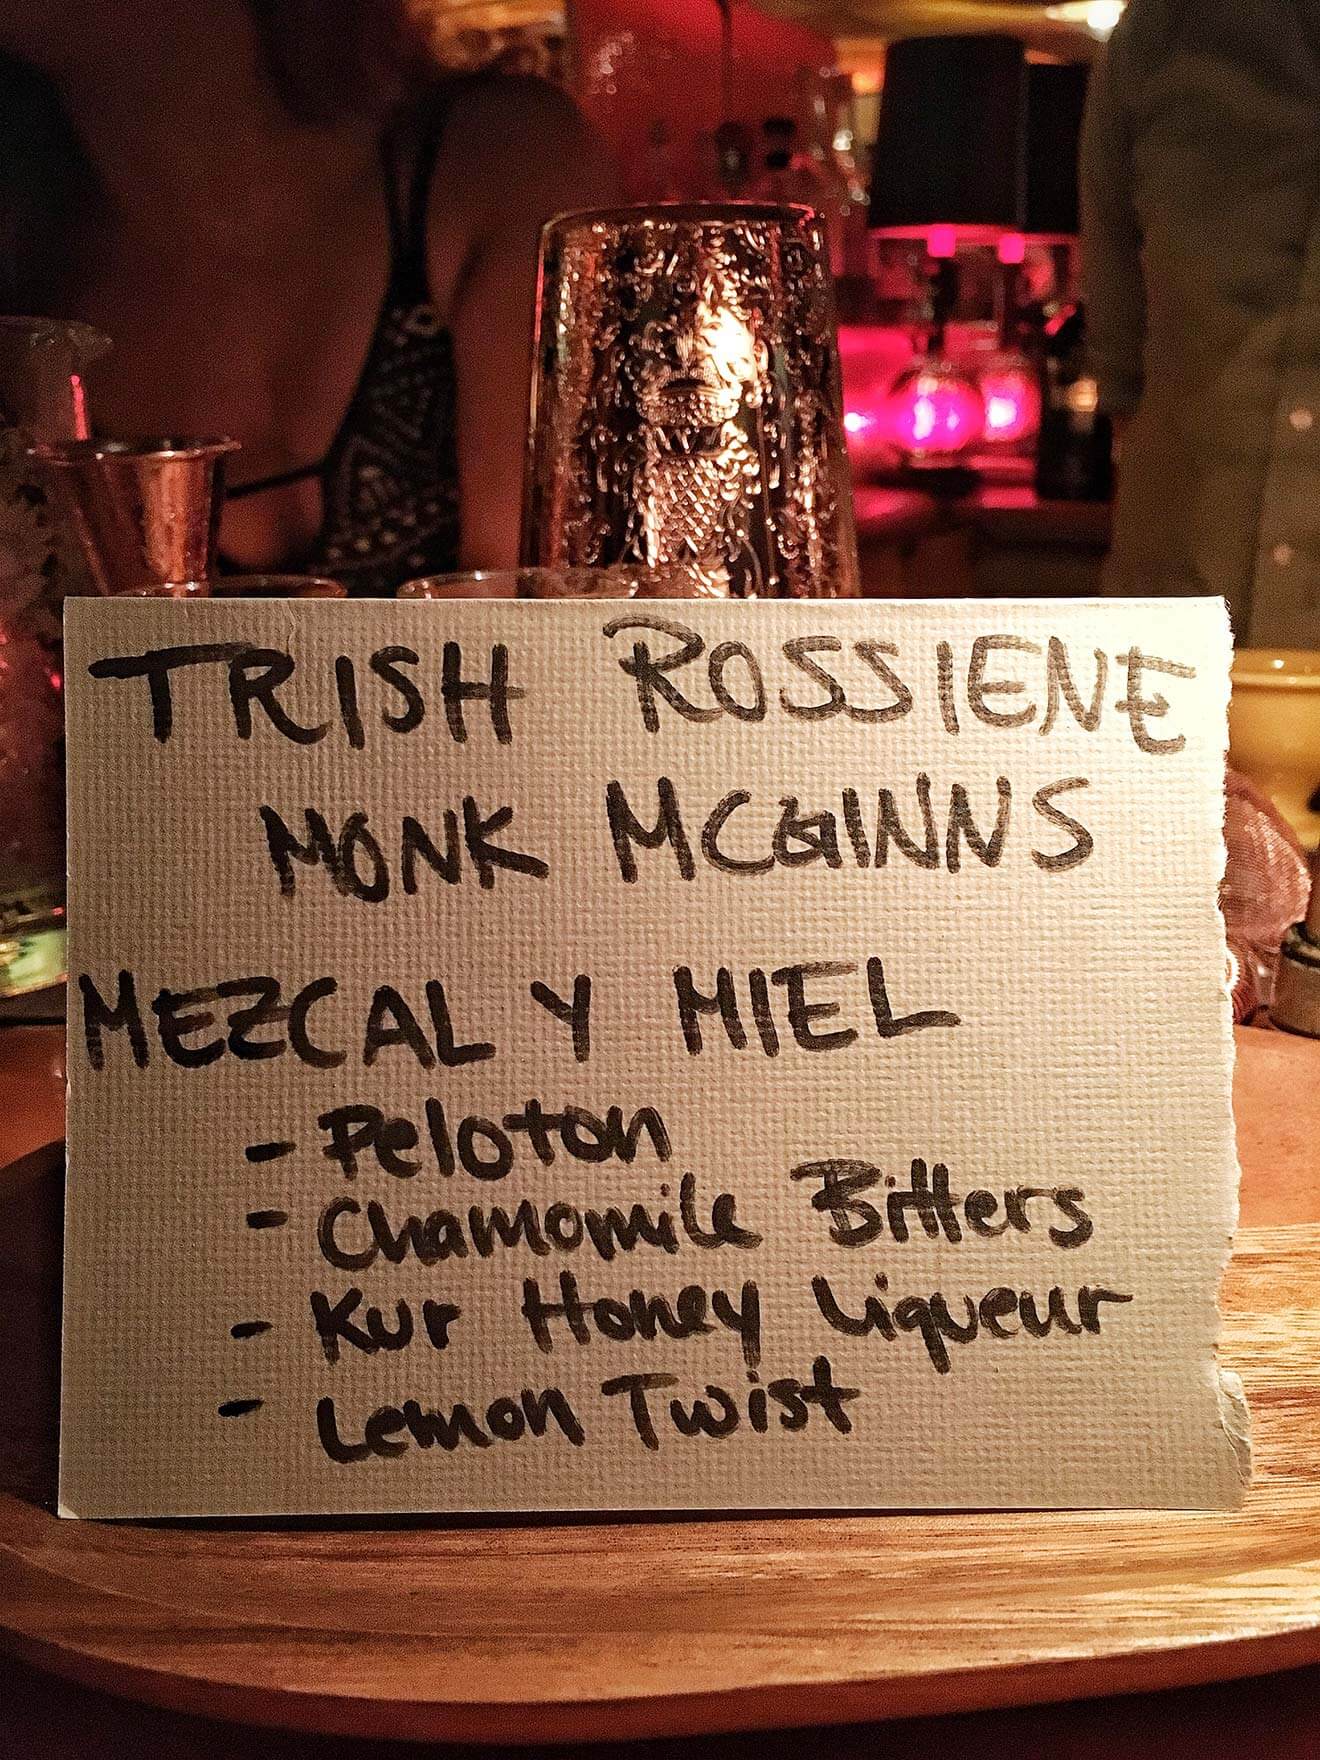 TRISH ROSSIENE
MONK MCGINNS
MEZCAL Y MIEL
- Peloton
- Chamomile Bitters
- Kur Honey Liqueur
- Lemon Twist